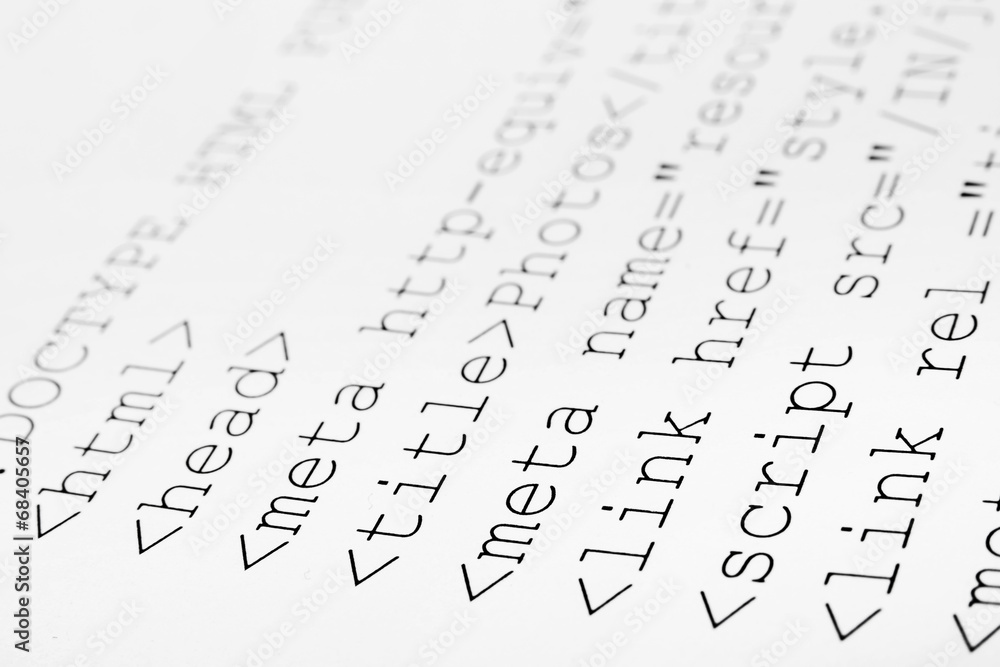 DOCTYPE HTML
<html>
<head>
<meta http-equiv=
<title>Photos</tit
<meta name="resour
<link href="style.
<script src="/IN/j
<link rel="ti
Adobe Stock | #68405657